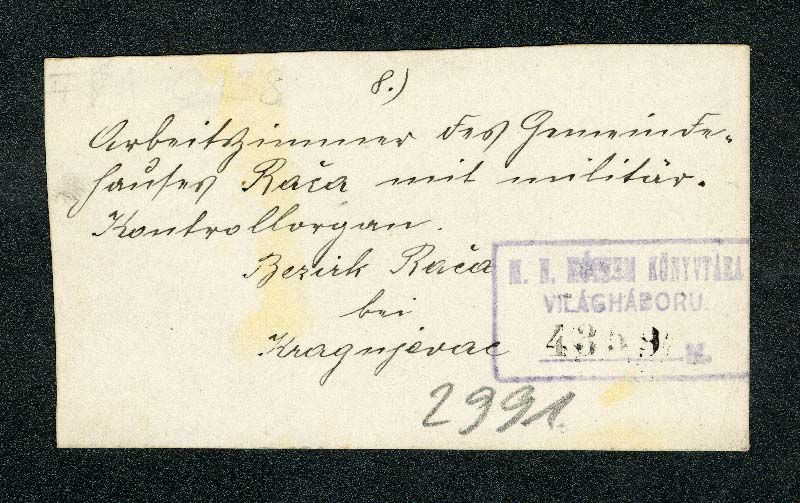 8.)
Arbeitszimmer des Gemeinde-
hauses Rača mit militär.
Kontrollorgan.
Bezirk Rača
bei
Kragujevac
M. N. MÚZEUM KÖNYVTÁRA
VILÁGHÁBORU.
2991